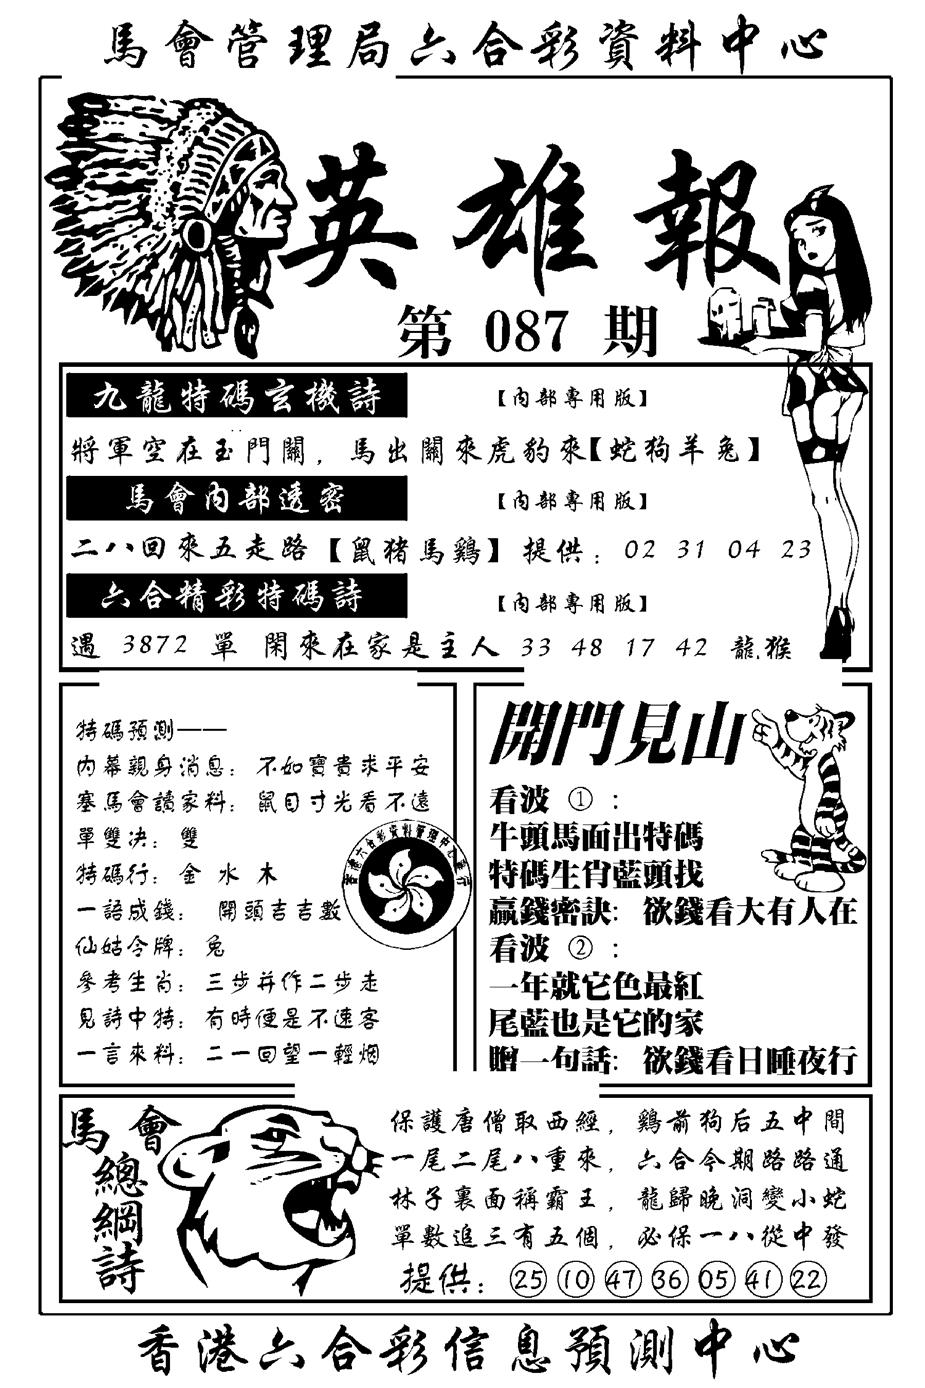 馬會管理局六合彩資料中心
英雄報
第 087 期
九龍特碼玄機詩 【內部專用版】
將軍空在玉門關，馬出關來虎豹來【蛇狗羊兔】
馬會內部透密 【內部專用版】
二八回來五走路【鼠猪馬鷄】提供：02 31 04 23
六合精彩特碼詩 【內部專用版】
遇 3872 單 閑來在家是主人 33 48 17 42 龍.猴
特碼預測——
內幕親身消息：不如寶貴求平安
塞馬會讀家料：鼠目寸光看不遠
單雙决：雙
特碼行：金 水 木
一語成錢： 開頭吉吉數
仙姑令牌：兔
參考生肖：三步并作二步走
見詩中特：有時便是不速客
一言來料：二一回望一輕烟
香港六合彩資料管理中心發行
開門見山
看波 ①：
牛頭馬面出特碼
特碼生肖藍頭找
贏錢密訣：欲錢看大有人在
看波 ②：
一年就它色最紅
尾藍也是它的家
贈一句話：欲錢看日睡夜行
馬會
總綱詩
保護唐僧取西經，鷄前狗后五中間
一尾二尾八重來，六合今期路路通
林子裏面稱霸王，龍歸晚洞變小蛇
單數追三有五個，必保一八從中發
提供：㉕ ⑩ ㊼ ㊱ 05 ㊶ ㉒
香港六合彩信息預測中心